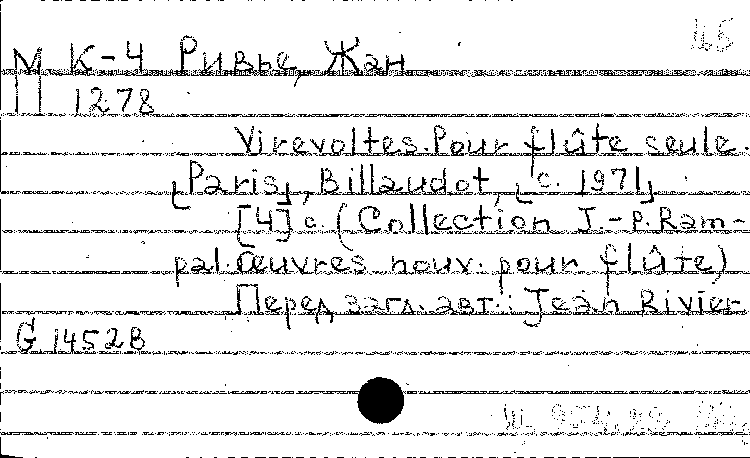 М К-4 Ривье, Жан
1278
Virevoltes. Pour flûte seule.
[Paris], Billaudot, [c. 1971]
[4] с. (Collection J.-P. Ram-
pal. Œuvres nouv. pour flûte)
Перед загл. авт.: Jean Rivier
G 1452В